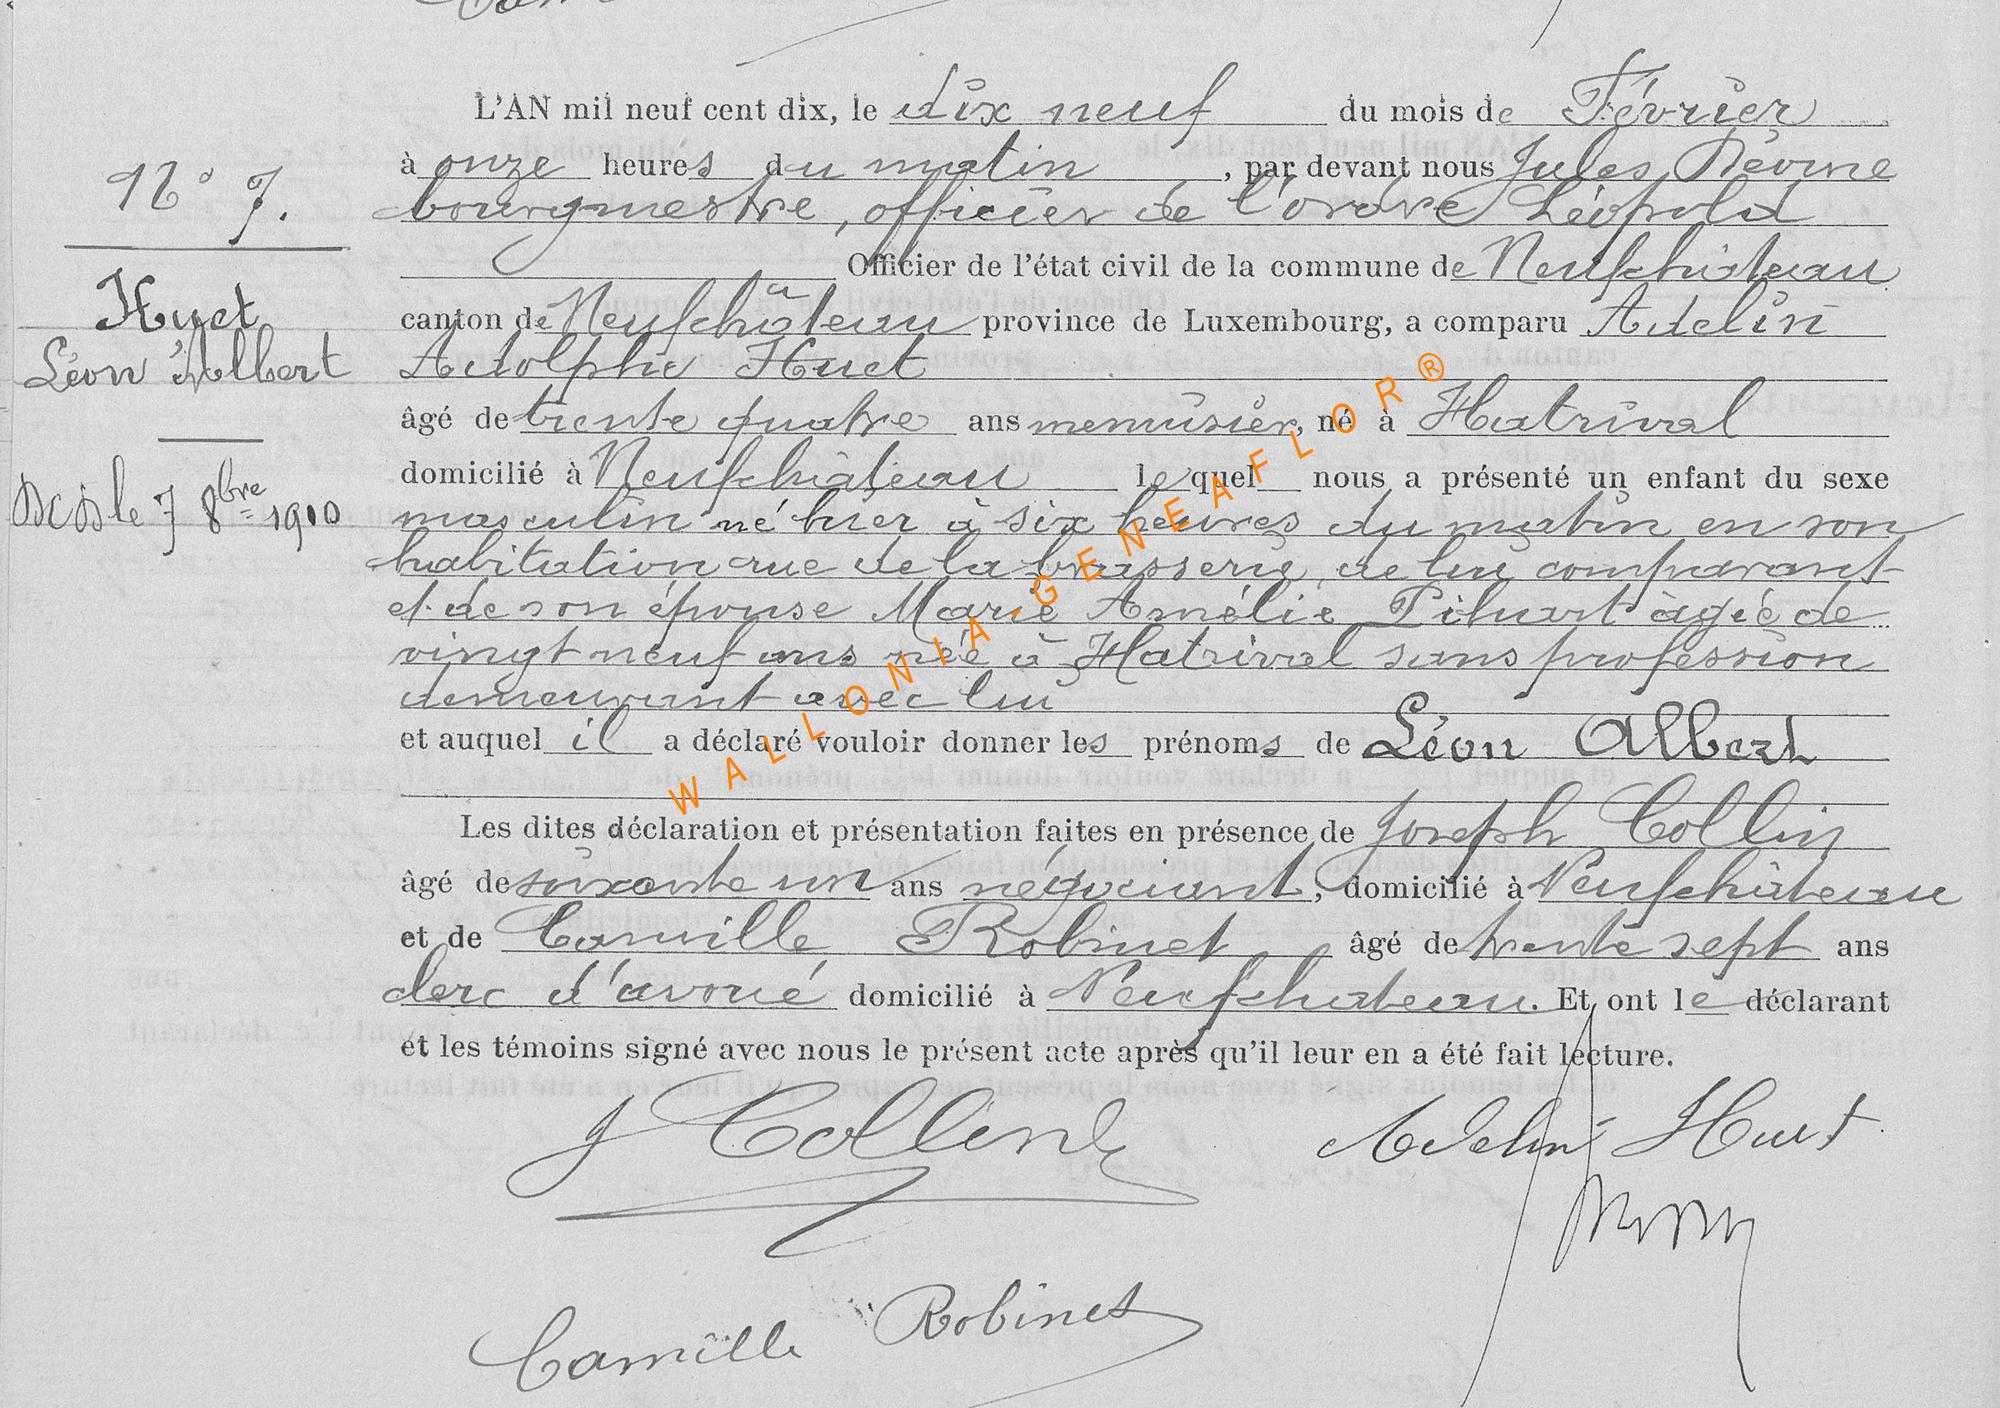 L'AN mil neuf cent dix, le dix neuf du mois de Février
à onze heures du matin , par devant nous Jules
bourgmestre, officier de l'ordre Léopold
Officier de l'état civil de la commune de Neufchâteau
canton de Neufchâteau province de Luxembourg, a comparu Adelin
Adolphe Huet
âgé de trente quatre ans menuisier, né à Hatrival
domicilié à Neufchâteau lequel nous a présenté un enfant du sexe
masculin né hier à six heures du matin en son
habitation rue de la brasserie, de lui comparant
et de son épouse Marie Amélie Pihart âgée de
vingt neuf ans née à Hatrival sans profession
demeurant avec lui
et auquel il a déclaré vouloir donner les prénoms de Léon Albert
Les dites déclaration et présentation faites en présence de Joseph Collin
âgé de soixante un ans négociant, domicilié à Neufchâteau
et de Camille Robinet âgé de trente sept ans
clerc d'avoué domicilié à Neufchateau. Et ont le déclarant
et les témoins signé avec nous le présent acte après qu'il leur en a été fait lecture.
J Collin
Adelin Huet
Camille Robinet
N° 7.
Huet
Léon Albert
le 7 8bre 1910
WALLONIA GENEAFLOR®